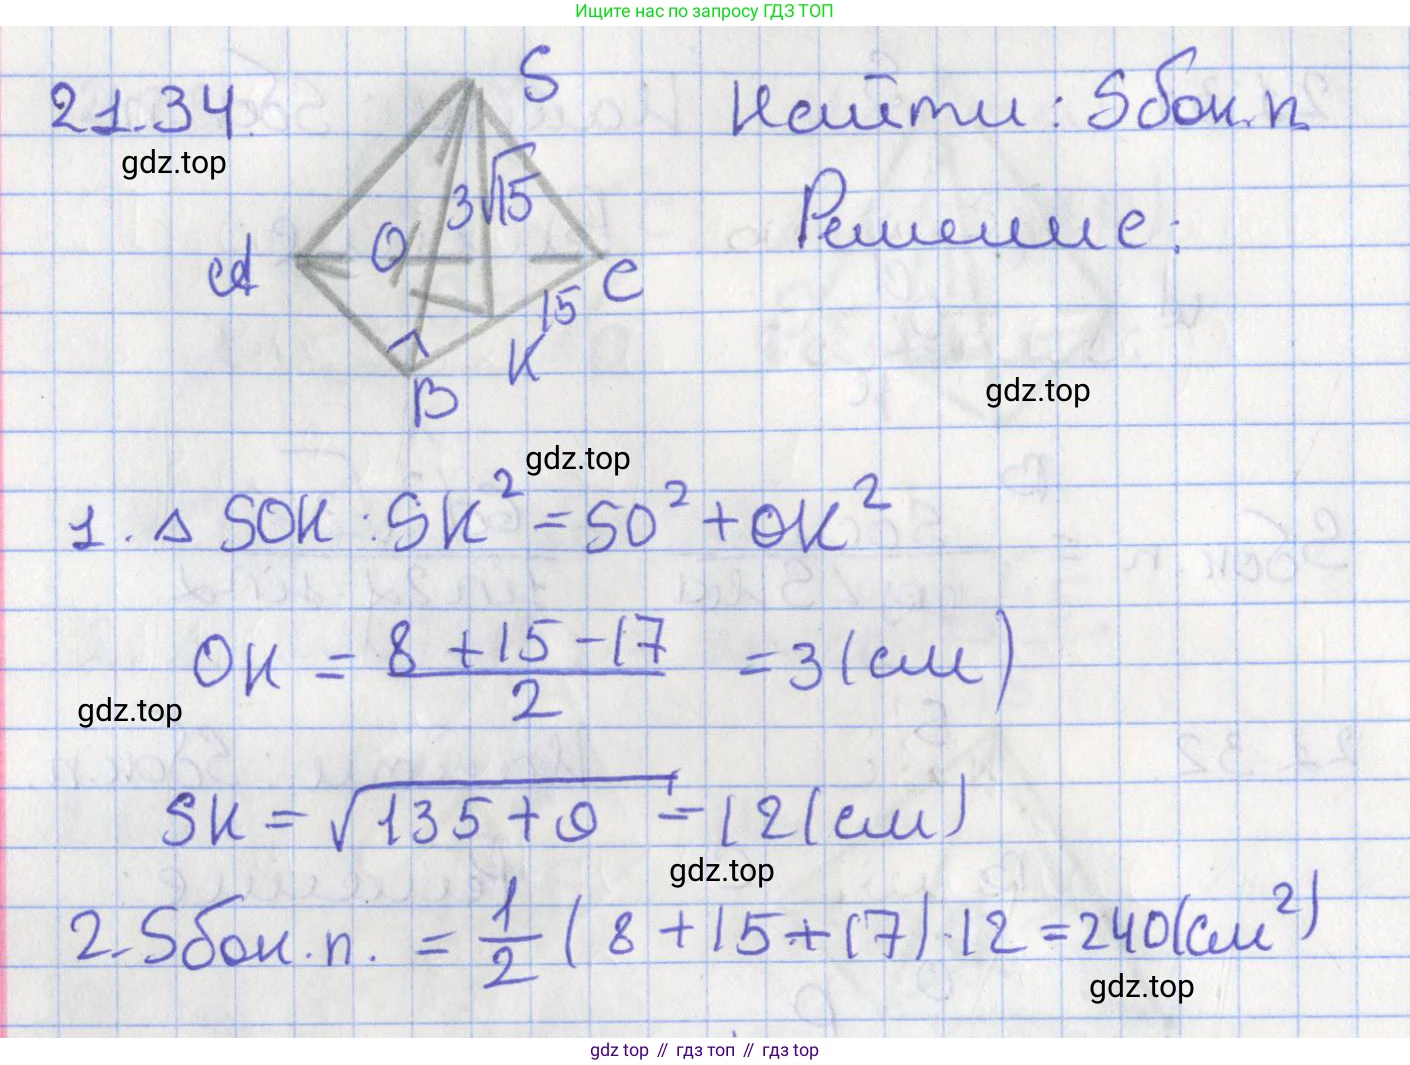 Ищите нас по запросу ГДЗ ТОП
21.34.
gdz.top
S
Найти: Sбок.п
3√15
Решение:
O
A
C
15
K
B
gdz.top
gdz.top
1. △ SOK : SK² = SO² + OK²
OK = (8 + 15 - 17)/2 = 3 (см)
gdz.top
SK = √(135 + 9) = 12 (см)
gdz.top
2. Sбок.п. = 1/2 (8 + 15 + 17) · 12 = 240 (см²)
gdz.top
gdz top // гдз топ // гдз top